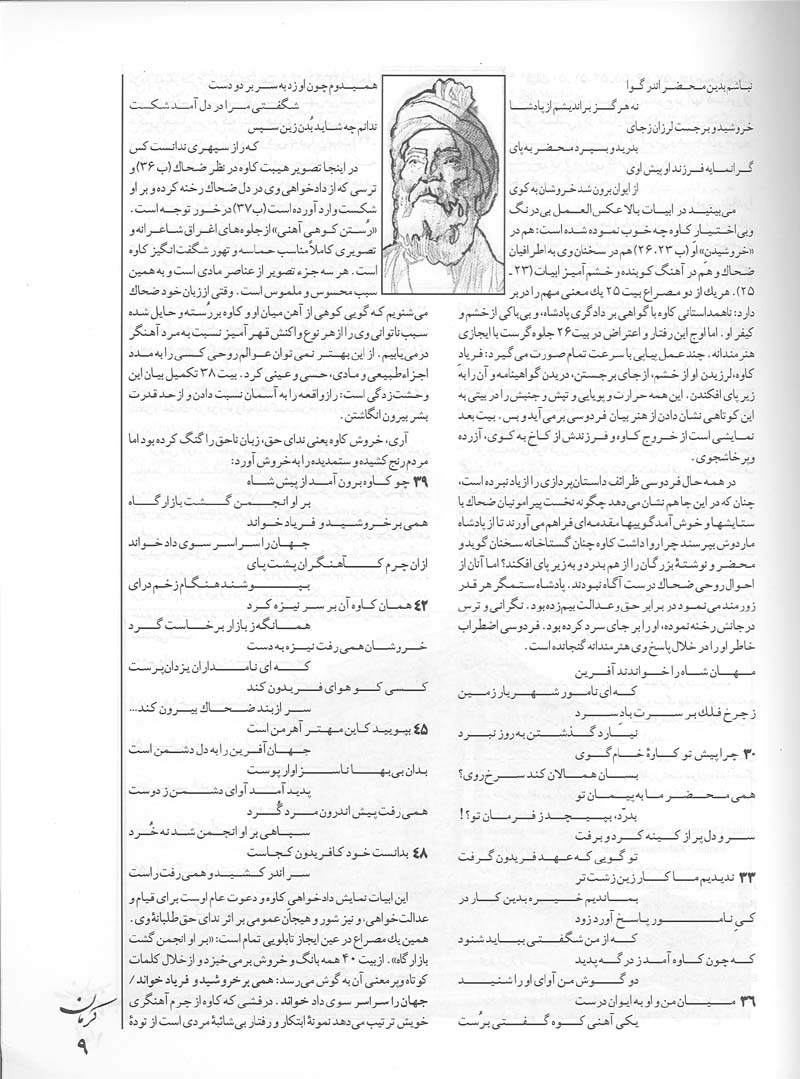 نباشم بدین محضر اندر گوا
نه هرگز براندیشم از پادشا
خروشید و برجست لرزان ز جای
بدرید و بسپرد محضر به پای
گرانمایه فرزند او پیش اوی
از ایوان برون شد خروشان به کوی
می‌بینید در ابیات بالا عکس‌العمل بی‌درنگ
و بی‌اختیار کاوه چه خوب نموده شده است: هم در
«خروشیدن» او (ب ۲۳، ۲۶) هم در سخنان وی به اطرافیان
ضحاک و هم در آهنگ کوبنده و خشم‌آمیز ابیات (۲۳ ـ
۲۵). هر یك از دو مصراع بیت ۲۵ یك معنی مهم را در بر
دارد: ناهمداستانی کاوه با گواهی بر دادگری پادشاه، و بی‌باکی از خشم و
کیفر او. اما اوج این رفتار و اعتراض در بیت ۲۶ جلوه‌گرست با ایجازی
هنرمندانه. چند عمل پیاپی با سرعت تمام صورت می‌گیرد: فریاد
کاوه، لرزیدن او از خشم، از جای برجستن، دریدن گواهینامه و آن را به
زیر پای افکندن. این همه حرارت و پویایی و تپش و جنبش را در بیتی به
این کوتاهی نشان دادن از هنر بیان فردوسی برمی‌آید و بس. بیت بعد
نمایشی است از خروج کاوه و فرزندش از کاخ به کوی، آزرده
و پرخاشجوی.
در همه حال فردوسی ظرائف داستان‌پردازی را از یاد نبرده است،
چنان که در این جا هم نشان می‌دهد چگونه نخست پیرامونیان ضحاك با
ستایشها و خوش‌آمدگوییها مقدمه‌ای فراهم می‌آورند تا از پادشاه
ماردوش بپرسند چرا روا داشت کاوه چنان گستاخانه سخنان گوید و
محضر و نوشتهٔ بزرگان را از هم بدرد و به زیر پای افکند؟ اما آنان از
احوال روحی ضحاك درست آگاه نبودند. پادشاه ستمگر هر قدر
زورمند می‌نمود در برابر حق و عدالت بیم‌زده بود. نگرانی و ترس
در جانش رخنه نموده، او را بر جای سرد کرده بود. فردوسی اضطراب
خاطر او را در خلال پاسخ وی هنرمندانه گنجانده است.
مهان شاه را خواندند آفرین
که ای نامور شهریار زمین
ز چرخ فلك بر سرت باد سرد
نیارد گذشتن به روز نبرد
۳۰ چرا پیش تو کاوهٔ خام گوی
بسان همالان کند سرخ روی؟
همی محضر ما به پیمان تو
بدرّد، بپیچد ز فرمان تو؟!
سر و دل پر از کینه کرد و برفت
تو گویی که عهد فریدون گرفت
۳۳ ندیدیم ما کار زین زشت تر
بماندیم خیره بدین کار در
کی نامور پاسخ آورد زود
که از من شگفتی بباید شنود
که چون کاوه آمد ز درگه پدید
دو گوش من آوای او را شنید
۳۶ میان من و او به ایوان درست
یکی آهنی کوه گفتی برُست
همیدوم چون او زد به سر بر دو دست
شگفتی مرا در دل آمد شکست
ندانم چه شاید بُدن زین سپس
که راز سپهری ندانست کس
در اینجا تصویر هیبت کاوه در نظر ضحاك (ب ۳۶) و
ترسی که از دادخواهی وی در دل ضحاك رخنه کرده و بر او
شکست وارد آورده است (ب ۳۷) درخور توجه است.
«رُستن کوهی آهنی» از جلوه‌های اغراق شاعرانه و
تصویری کاملاً مناسب حماسه و تهور شگفت‌انگیز کاوه
است. هر سه جزء تصویر از عناصر مادی است و به همین
سبب محسوس و ملموس است. وقتی از زبان خود ضحاك
می‌شنویم که گویی کوهی از آهن میان او و کاوه بررُسته و حایل شده
سبب ناتوانی وی را از هر نوع واکنش قهرآمیز نسبت به مرد آهنگر
درمی‌یابیم. از این بهتر نمی‌توان عوالم روحی کسی را به مدد
اجزاء طبیعی و مادی، حسی و عینی کرد. بیت ۳۸ تکمیل بیان این
وحشت‌زدگی است: راز واقعه را به آسمان نسبت دادن و از حد قدرت
بشر بیرون انگاشتن.
آری، خروش کاوه یعنی ندای حق، زبان ناحق را گنگ کرده بود اما
مردم رنج کشیده و ستمدیده را به خروش آورد:
۳۹ چو کاوه برون آمد از پیش شاه
بر او انجمن گشت بازارگاه
همی برخروشید و فریاد خواند
جهان را سراسر سوی داد خواند
از آن چرم کآهنگران پشت پای
بپوشند هنگام زخم درای
۴۲ همان کاوه آن بر سر نیزه کرد
همانگه ز بازار برخاست گرد
خروشان همی رفت نیزه به دست
که ای نامداران یزدان‌پرست
کسی کو هوای فریدون کند
سر از بند ضحاك بیرون کند...
۴۵ بپویید کاین مهتر آهرمن است
جهان‌آفرین را به دل دشمن است
بدان بی‌بها ناسزاوار پوست
پدید آمد آوای دشمن ز دوست
همی رفت پیش اندرون مرد گُرد
سپاهی بر او انجمن شد نه خُرد
۴۸ بدانست خود کافریدون کجاست
سر اندر کشید و همی رفت راست
این ابیات نمایش دادخواهی کاوه و دعوت عام اوست برای قیام و
عدالت‌خواهی، و نیز شور و هیجان عمومی بر اثر ندای حق‌طلبانهٔ وی.
همین یك مصراع در عین ایجاز تابلویی تمام است: «بر او انجمن گشت
بازارگاه». از بیت ۴۰ همه بانگ و خروش برمی‌خیزد و از خلال کلمات
کوتاه و پرمعنی آن به گوش می‌رسد: همی برخروشید و فریاد خواند /
جهان را سراسر سوی داد خواند. درفشی که کاوه از چرم آهنگری
خویش ترتیب می‌دهد نمونهٔ ابتکار و رفتار بی‌شائبهٔ مردی است از تودهٔ
کرمان
۹